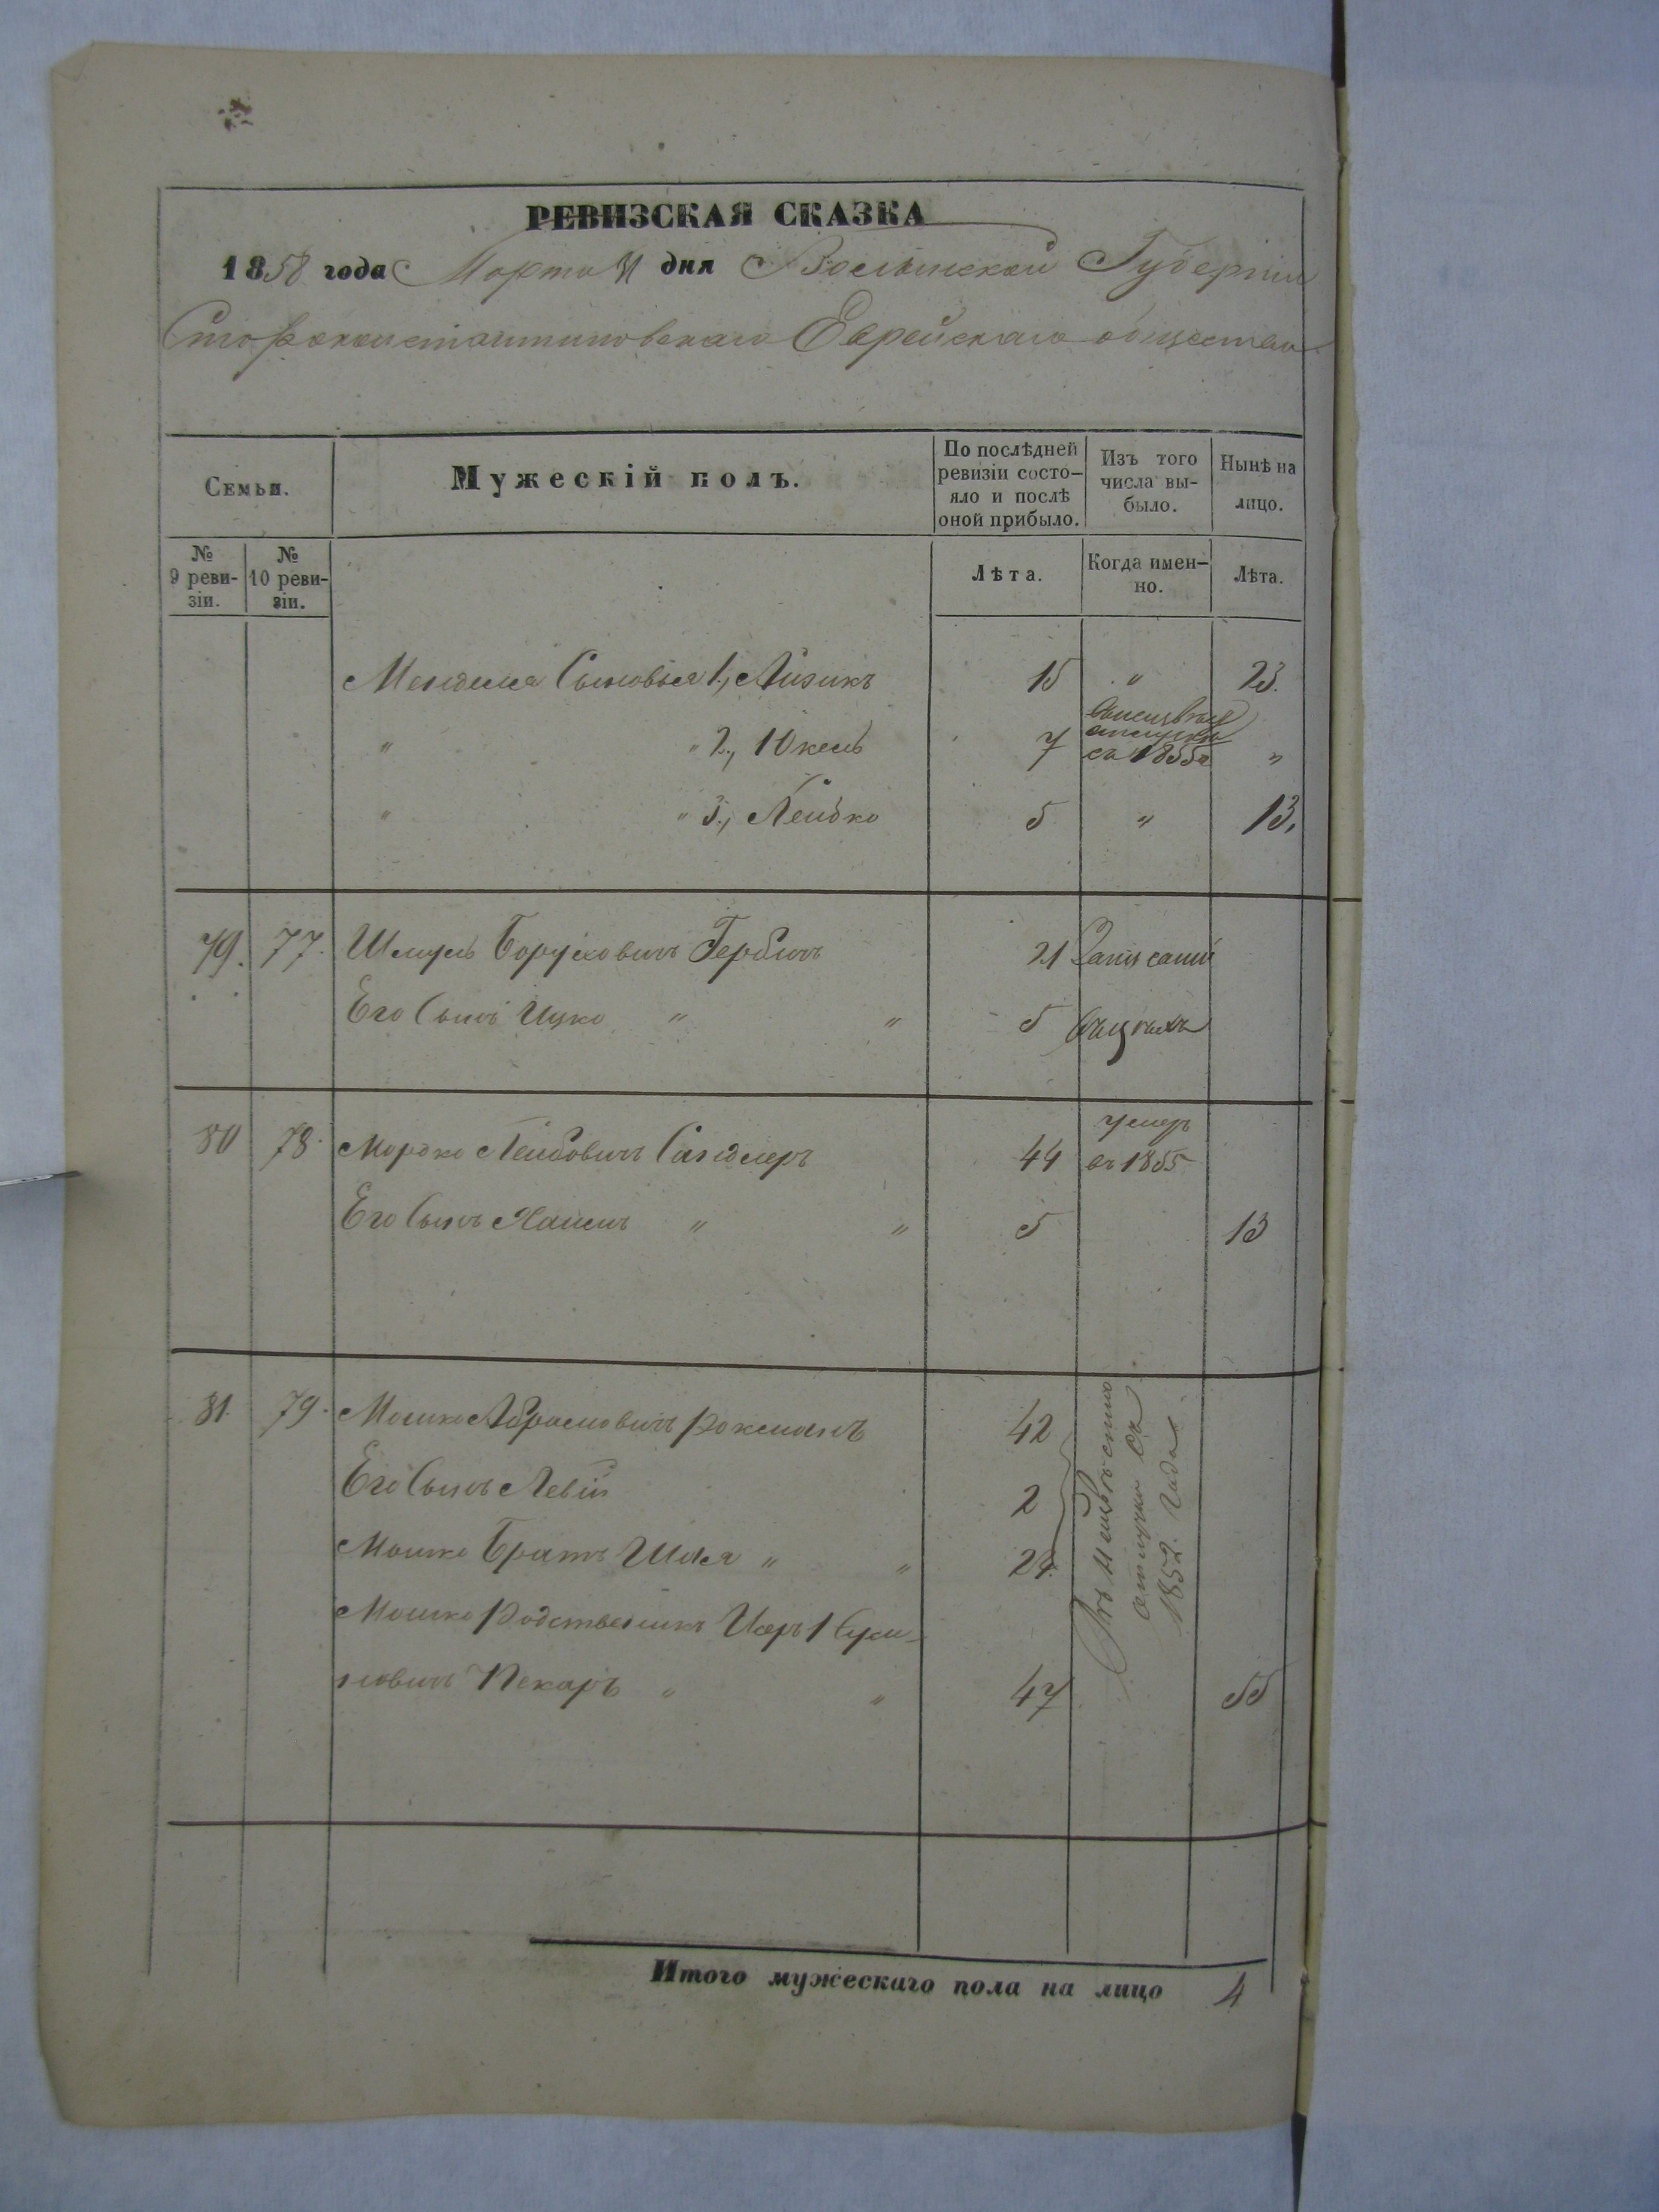 РЕВИЗСКАЯ СКАЗКА
1858 года Марта 31 дня Волынской Губерніи
Староконстантиновскаго Еврейскаго общества
Семьи.
Мужескій полъ.
По послѣдней ревизіи состо-
яло и послѣ
оной прибыло.
Изъ того
числа вы-
было.
Нынѣ на
лицо.
№
9 реви-
зіи.
№
10 реви-
зіи.
Лѣта.
Когда имен-
но.
Лѣта.
Менделя Сыновья 1., Айзикъ 15 " 23.
" " 2., Юкель 7 отлучкѣ съ 1855 "
" " 3., Лейбко 5 " 13.
79. 77. Шмуль Боруховичъ Гербичъ 21 Записаны
Его Сынъ Ицко " " 5
80 78. Мордко Лейбовичъ Сандлеръ 44 умеръ въ 1855
Его Сынъ Хаимъ " " 5 13
81. 79. Мошко Абрамовичъ Роксманъ 42
Его Сынъ Левій 2
Мошко Братъ Шая " " 24.
Въ неизвѣстной
отлучкѣ съ
1852. Года
Мошко Родственикъ Исеръ
новичъ Пекаръ " " 47 55
Итого мужескаго пола на лицо 4